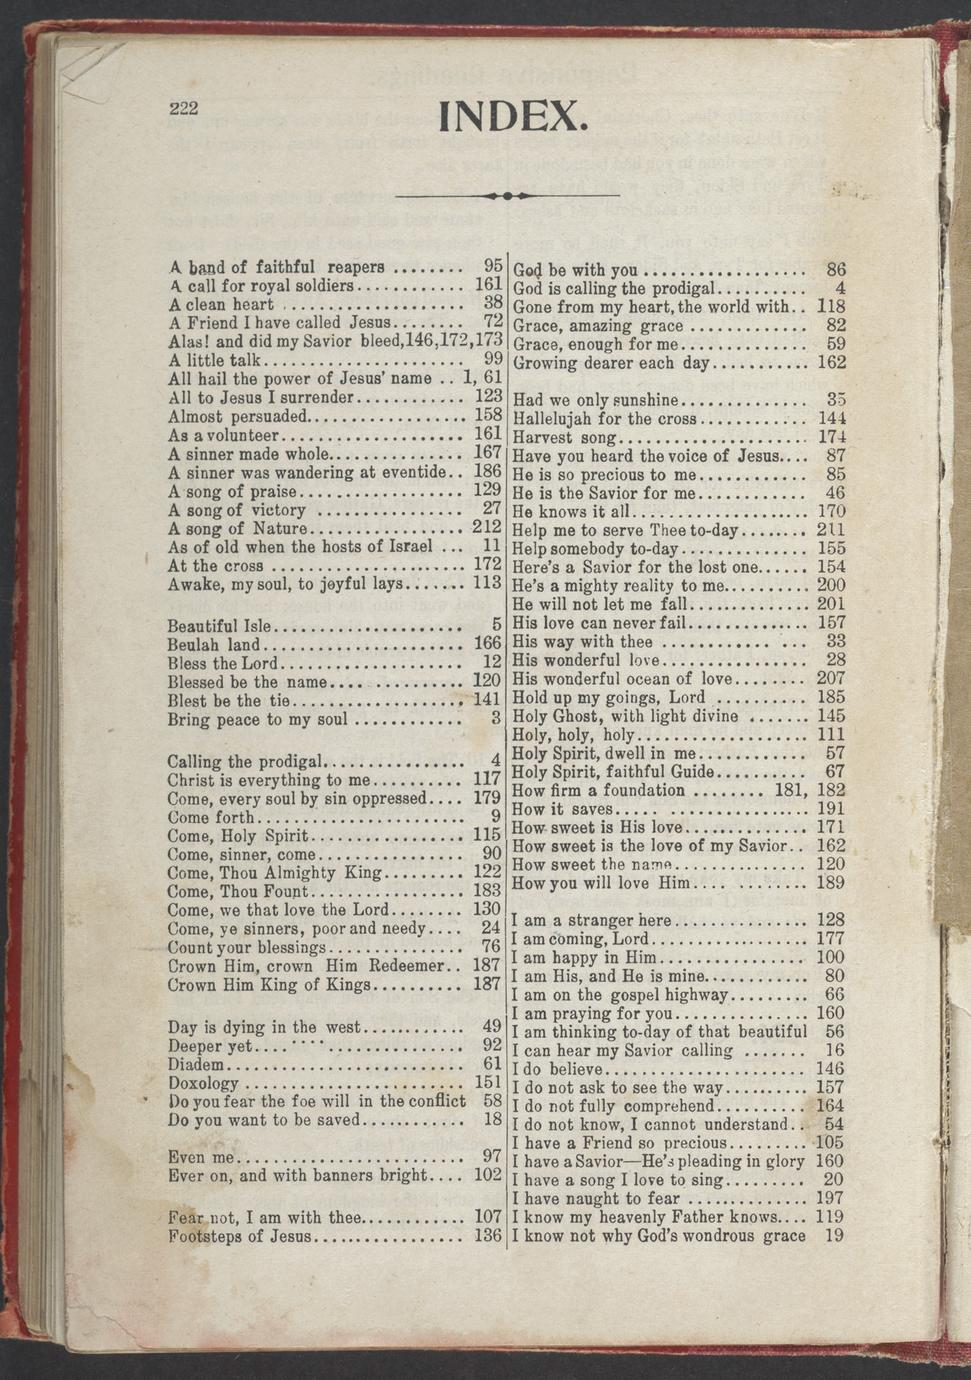 222
INDEX.
A band of faithful reapers ........ 95
A call for royal soldiers............ 161
A clean heart ................... 38
A Friend I have called Jesus........ 72
Alas! and did my Savior bleed,146,172,173
A little talk........................ 99
All hail the power of Jesus' name .. 1, 61
All to Jesus I surrender............ 123
Almost persuaded.................. 158
As a volunteer..................... 161
A sinner made whole............... 167
A sinner was wandering at eventide.. 186
A song of praise................... 129
A song of victory ................ 27
A song of Nature................. 212
As of old when the hosts of Israel ... 11
At the cross ...................... 172
Awake, my soul, to joyful lays....... 113
Beautiful Isle..................... 5
Beulah land....................... 166
Bless the Lord.................... 12
Blessed be the name.... .......... 120
Blest be the tie................... 141
Bring peace to my soul ............ 3
Calling the prodigal................ 4
Christ is everything to me.......... 117
Come, every soul by sin oppressed.... 179
Come forth........................ 9
Come, Holy Spirit................. 115
Come, sinner, come................ 90
Come, Thou Almighty King......... 122
Come, Thou Fount................. 183
Come, we that love the Lord........ 130
Come, ye sinners, poor and needy.... 24
Count your blessings............... 76
Crown Him, crown Him Redeemer.. 187
Crown Him King of Kings.......... 187
Day is dying in the west............ 49
Deeper yet........ ............... 92
Diadem........................... 61
Doxology ........................ 151
Do you fear the foe will in the conflict 58
Do you want to be saved............ 18
Even me......................... 97
Ever on, and with banners bright.... 102
Fear not, I am with thee............ 107
Footsteps of Jesus................. 136
God be with you .................. 86
God is calling the prodigal.......... 4
Gone from my heart, the world with.. 118
Grace, amazing grace ............. 82
Grace, enough for me.............. 59
Growing dearer each day........... 162
Had we only sunshine.............. 35
Hallelujah for the cross............ 144
Harvest song..................... 174
Have you heard the voice of Jesus.... 87
He is so precious to me............ 85
He is the Savior for me............ 46
He knows it all................... 170
Help me to serve Thee to-day........ 211
Help somebody to-day.............. 155
Here's a Savior for the lost one...... 154
He's a mighty reality to me.......... 200
He will not let me fall.............. 201
His love can never fail.............. 157
His way with thee ............ ... 33
His wonderful love................ 28
His wonderful ocean of love........ 207
Hold up my goings, Lord .......... 185
Holy Ghost, with light divine ....... 145
Holy, holy, holy................... 111
Holy Spirit, dwell in me............ 57
Holy Spirit, faithful Guide.......... 67
How firm a foundation ........ 181, 182
How it saves..... ................ 191
How sweet is His love.............. 171
How sweet is the love of my Savior.. 162
How sweet the name............... 120
How you will love Him.... ........ 189
I am a stranger here............... 128
I am coming, Lord................. 177
I am happy in Him................ 100
I am His, and He is mine............ 80
I am on the gospel highway......... 66
I am praying for you............... 160
I am thinking to-day of that beautiful 56
I can hear my Savior calling ....... 16
I do believe...................... 146
I do not ask to see the way.......... 157
I do not fully comprehend.......... 164
I do not know, I cannot understand.. 54
I have a Friend so precious......... 105
I have a Savior—He's pleading in glory 160
I have a song I love to sing......... 20
I have naught to fear .............. 197
I know my heavenly Father knows.... 119
I know not why God's wondrous grace 19